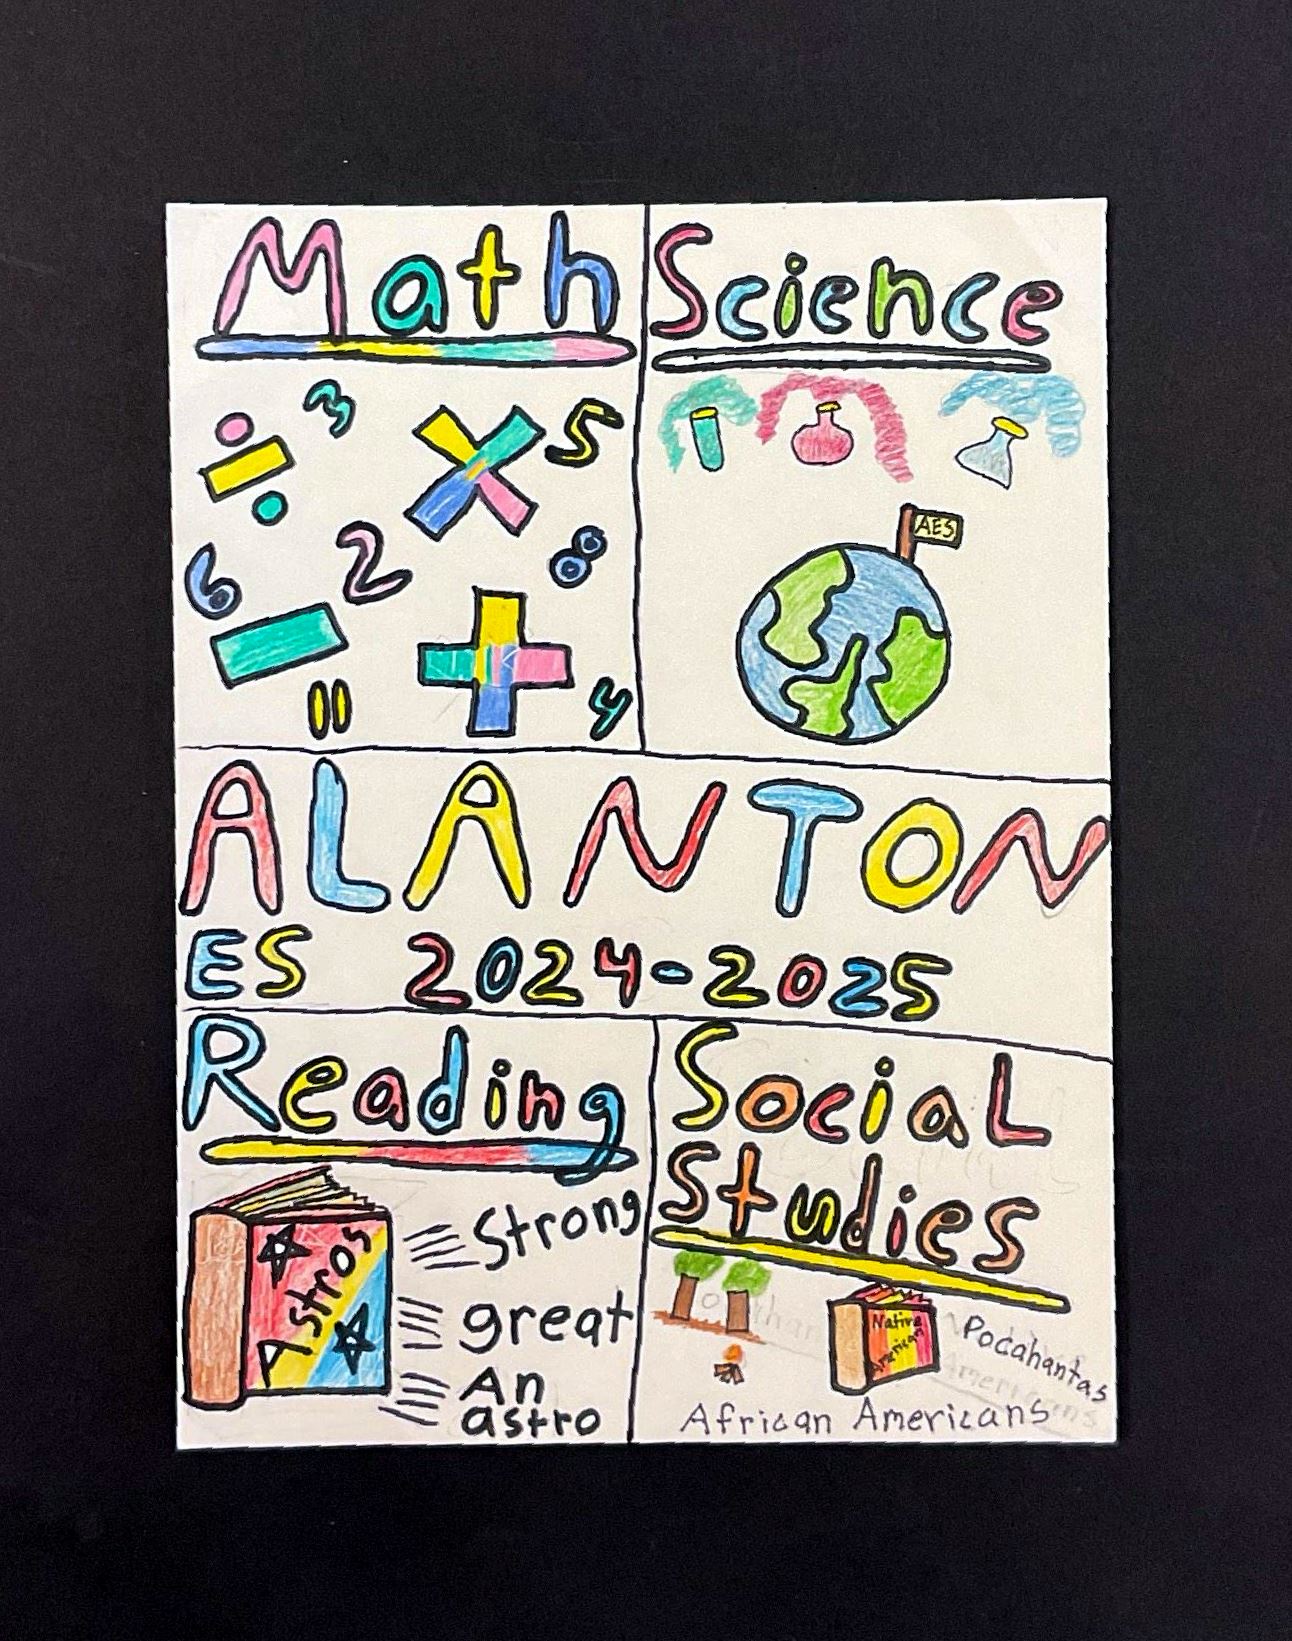 Math
3
5
6
2
8
11
4
Science
AES
ALANTON
ES 2024-2025
Reading
Astros
Strong
great
An
astro
Social
Studies
Native
American
Pocahantas
African Americans